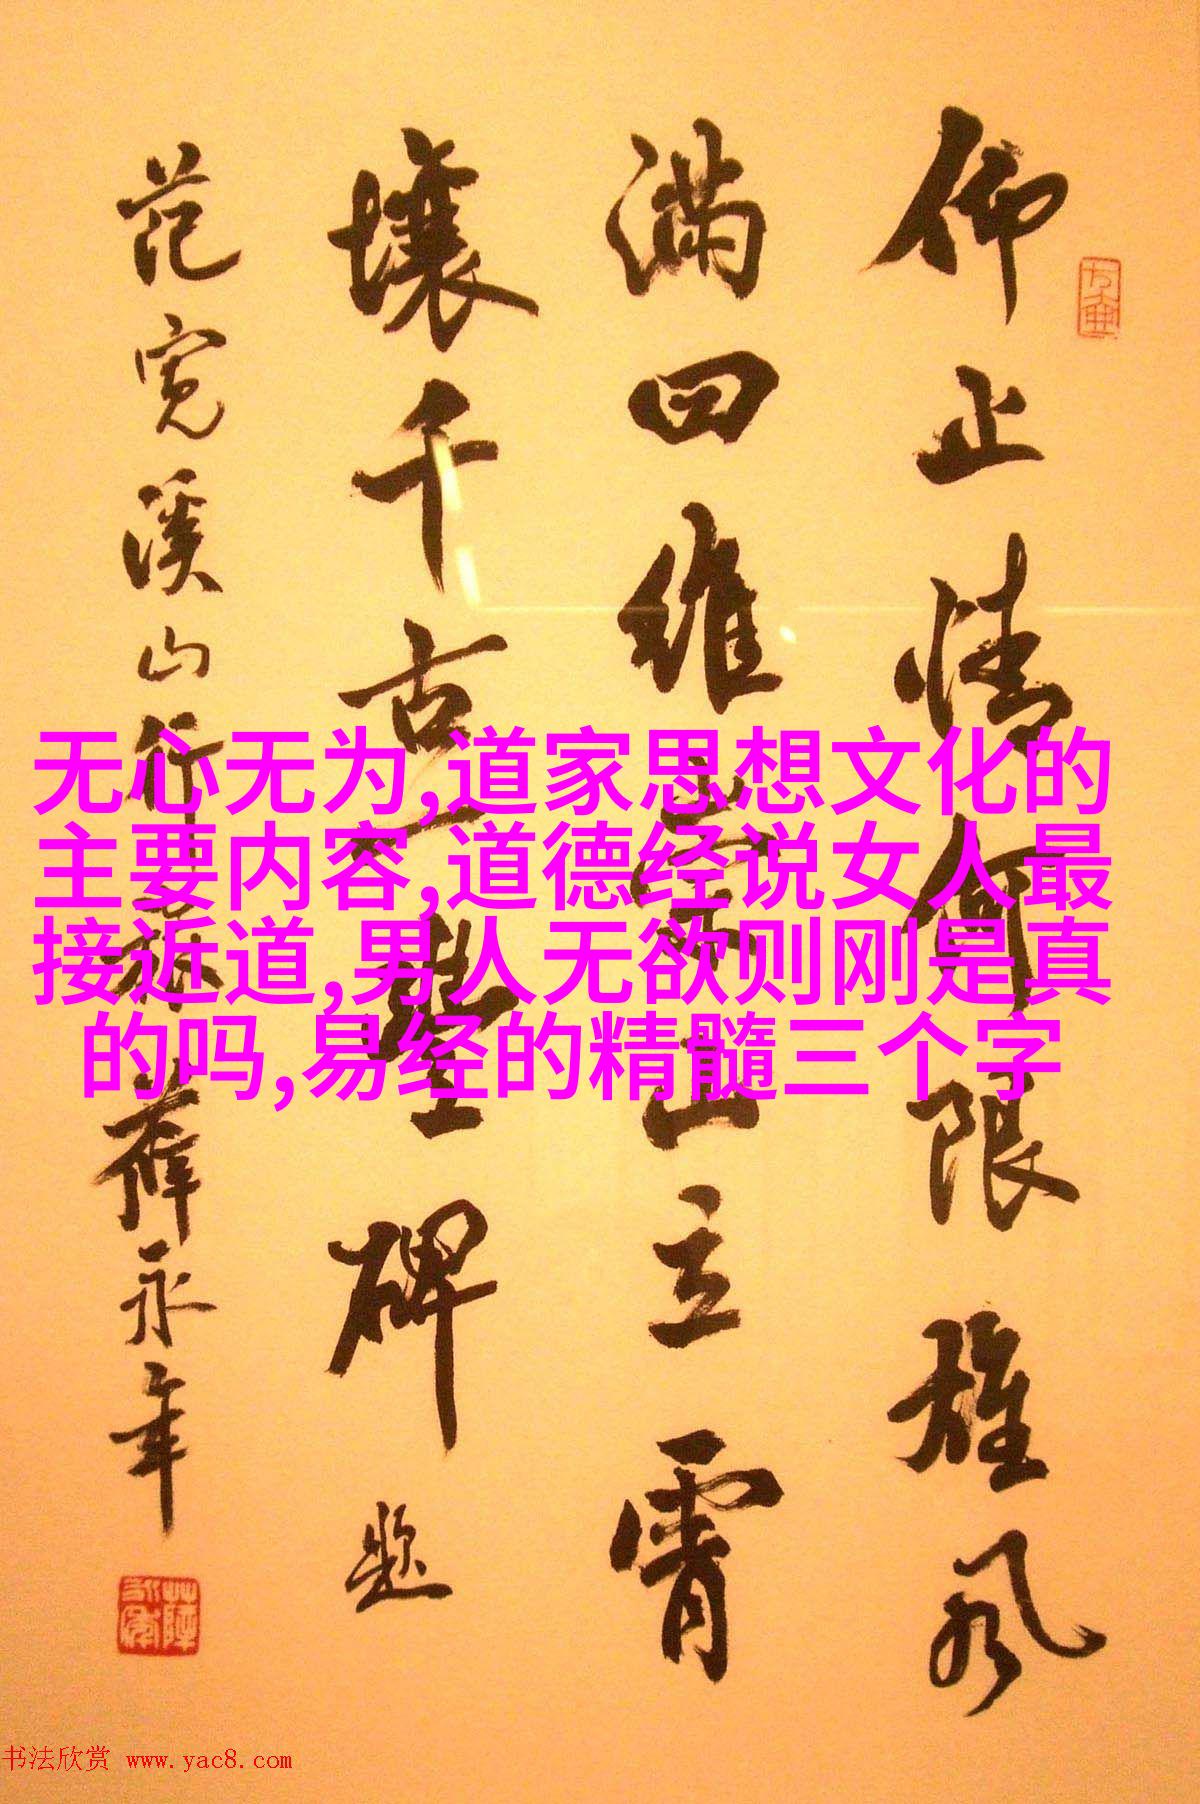 仰止情何限雄风
满四维崇山立霄
壤千古一碑题
范宽溪山行旅 薛永年
无心无为,道家思想文化的
主要内容,道德经说女人最
接近道,男人无欲则刚是真
的吗,易经的精髓三个字
书法欣赏 www.yac8.com